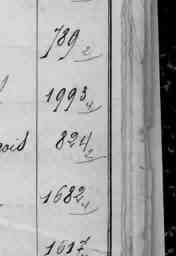 789 2
1993 4
ois 824 2
1682 4
1617